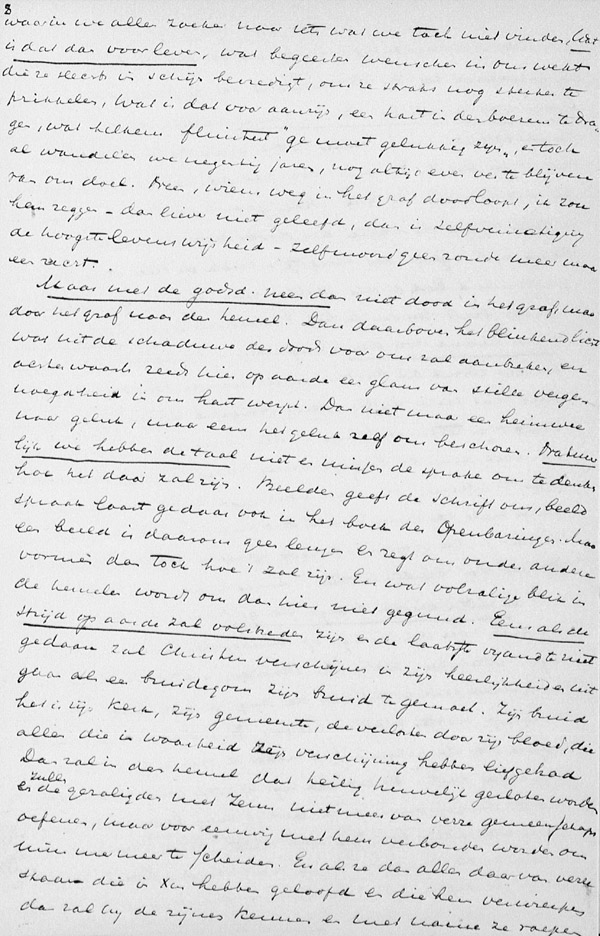 8
waarin we allen zoeken naar iets wat we toch niet vinden, Wat
is dat dan voor leven, wat begeerten menschen in ons wekt
die ze slechts in schijn bevredigt, om ze straks nog sterker te
prikkelen, Wat is dat voor aanzijn, een hart in den boezem te dra
gen, wat telkens fluistert "ge moet gelukkig zijn, en toch
al wandelen we negentig jaren, nog altijd even ver te blijven
van ons doel. Neen, wiens weg in het graf doodloopt, ik zou
hem zeggen - dan liever niet geleefd, dan is zelfvernietiging
de hoogste levenswijsheid - zelfmoord geen zonde meer maar
een
Maar met de godsd. neen dan niet dood in het graf, maar
door het graf naar den hemel. Dan daarboven het blinkend licht
wat uit de schaduwe des doods voor ons zal aanbreken, en
achterwaarts reeds hier op aarde een glans van stille verge
noegdheid in ons hart werpt. Dan niet maar een heimwee
naar geluk, maar eens het geluk zelf ons beschoren.
lijk we hebben de taal niet en missen de sprake om te denken
hoe het daar zal zijn. Beelden geeft de Schrift ons, beeld
spraak laart gedaan ook in het boek der Openbaringen. Maar
een beeld is daarom geen leugen Er zegt ons onder andere
vormen dan toch hoe 't zal zijn. En wat volzalige blik in
de hemelen wordt ons dan hier niet gegund. Eens als de
strijd op aarde zal volstreden zijn en de laatste vijand te niet
gedaan zal Christus verschijnen in zijn heerlijkheid en uit
gaan als een bruidegom zijn bruid te gemoet. Zijn bruid
het is zijn kerk, zijn gemeente, de verlosten door zijn bloed, die
allen die in waarheid zijn verschijning hebben liefgehad
Dan zal in den hemel dat heilig huwelijk gesloten worden
en zullen de gezaligden met Jezus niet meer van verre gemeenschap
oefenen, maar voor eeuwig met hem verbonden worden om
nimmermeer te scheiden. En als ze dan allen daar van verre
staan die in Xus hebben geloofd en die hem verwierpen
dan zal hij de zijnen kennen en met name ze roepen